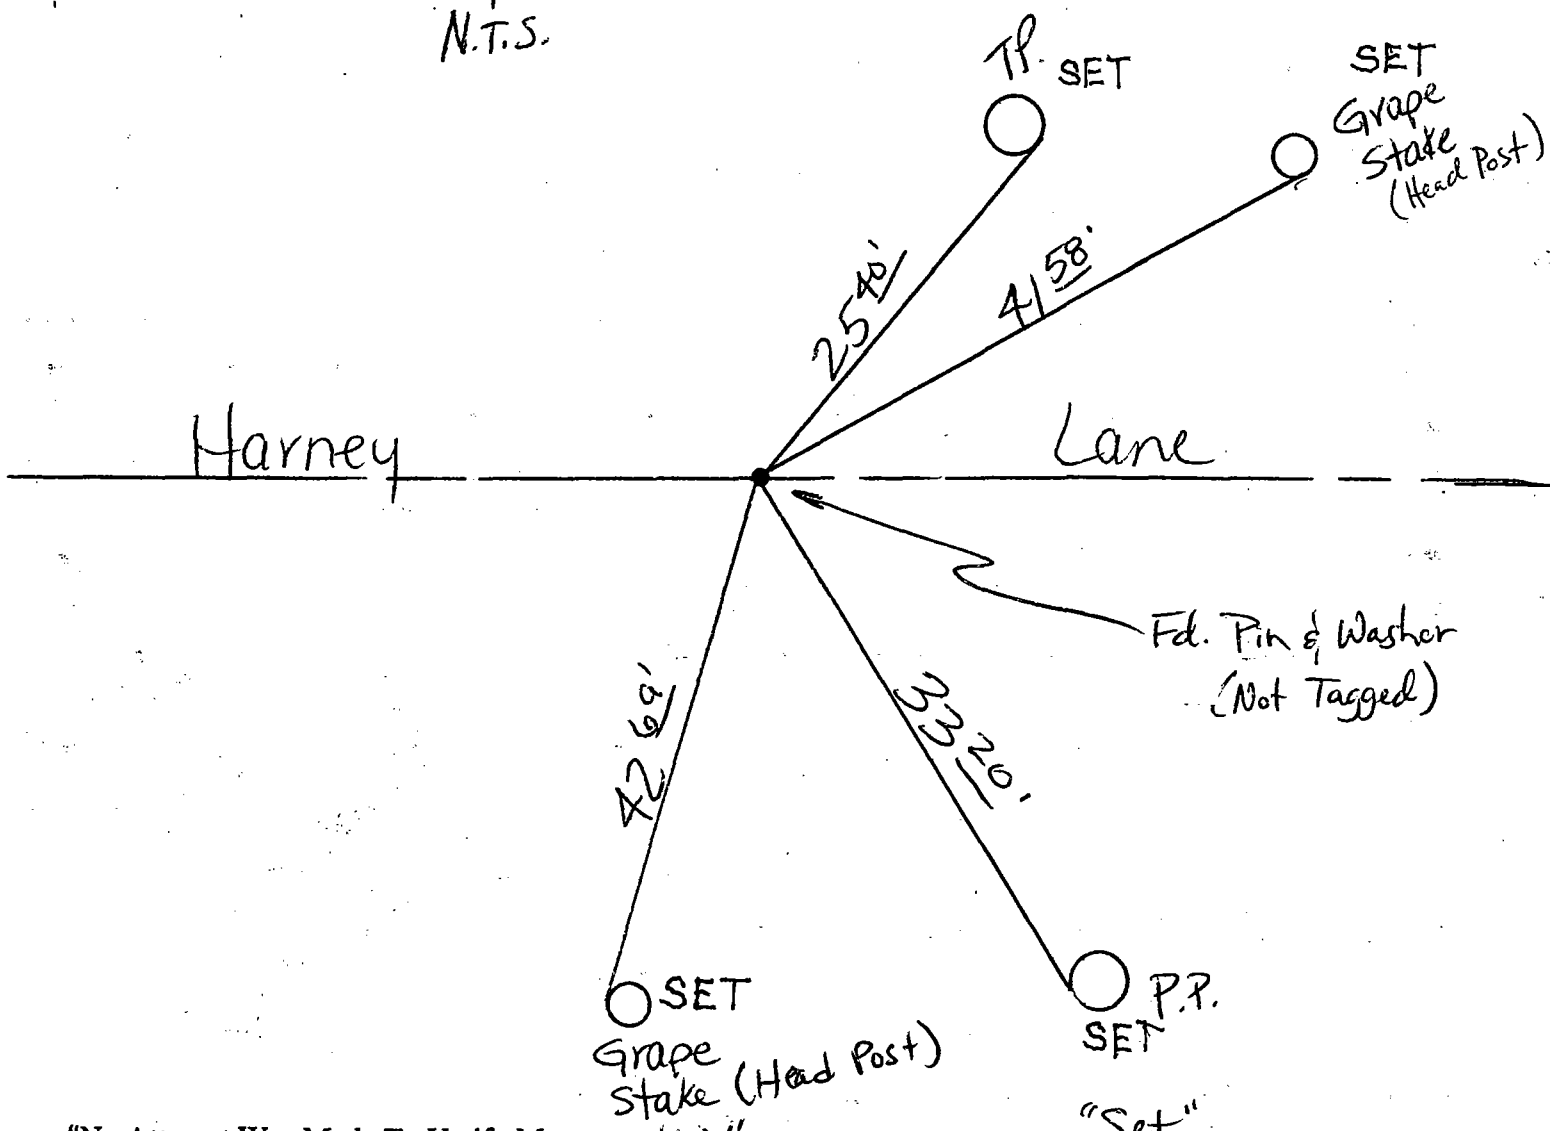 N.T.S.
T.P. SET
SET
Grape
Stake
(Head Post)
25 40'
41 58'
Harney Lane
Fd. Pin & Washer
(Not Tagged)
42 69'
33 20'
SET
Grape
Stake (Head Post)
P.P.
SET
"Set"